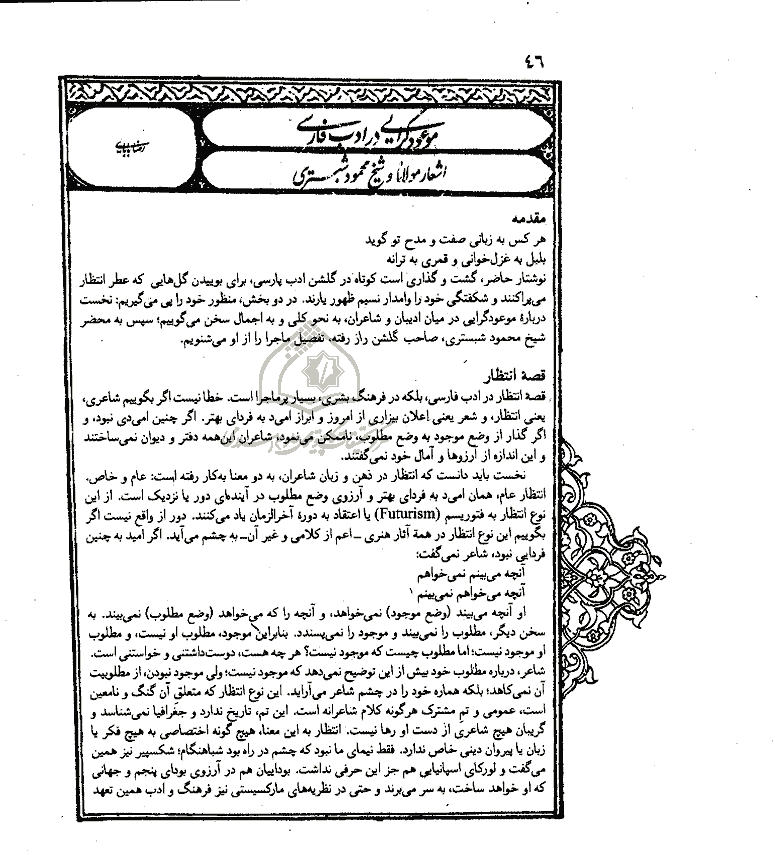 ٤٦
موعودگرایی در ادب فارسی
رضا بابایی
اشعار مولانا و شیخ محمود شبستری
مقدمه
هر کس به زبانی صفت و مدح تو گوید
بلبل به غزل‌خوانی و قمری به ترانه
نوشتار حاضر، گشت و گذاری است کوتاه در گلشن ادب پارسی، برای بوییدن گل‌هایی که عطر انتظار
می‌پراکنند و شکفتگی خود را وامدار نسیم ظهور یارند. در دو بخش، منظور خود را پی می‌گیریم: نخست
دربارهٔ موعودگرایی در میان ادیبان و شاعران، به نحو کلی و به اجمال سخن می‌گوییم؛ سپس به محضر
شیخ محمود شبستری، صاحب گلشن راز رفته، تفصیل ماجرا را از او می‌شنویم.
قصهٔ انتظار
قصهٔ انتظار در ادب فارسی، بلکه در فرهنگ بشری، بسیار پرماجرا است. خطا نیست اگر بگوییم شاعری،
یعنی انتظار، و شعر یعنی إعلان بیزاری از امروز و ابراز امی‌د به فردای بهتر. اگر چنین امی‌دی نبود، و
اگر گذار از وضع موجود به وضع مطلوب، ناممکن می‌نمود، شاعران این‌همه دفتر و دیوان نمی‌ساختند
و این اندازه از آرزوها و آمال خود نمی‌گفتند.
نخست باید دانست که انتظار در ذهن و زبان شاعران، به دو معنا به‌کار رفته است: عام و خاص.
انتظار عام، همان امی‌د به فردای بهتر و آرزوی وضع مطلوب در آینده‌ای دور یا نزدیک است. از این
نوع انتظار به فتوریسم (Futurism) یا اعتقاد به دورهٔ آخرالزمان یاد می‌کنند. دور از واقع نیست اگر
بگوییم این نوع انتظار در همهٔ آثار هنری ـ اعم از کلامی و غیر آن‌ـ به چشم می‌آید. اگر امید به چنین
فردایی نبود، شاعر نمی‌گفت:
آنچه می‌بینم نمی‌خواهم
آنچه می‌خواهم نمی‌بینم ۱
او آنچه می‌بیند (وضع موجود) نمی‌خواهد، و آنچه را که می‌خواهد (وضع مطلوب) نمی‌بیند. به
سخن دیگر، مطلوب را نمی‌بیند و موجود را نمی‌پسندد. بنابراین موجود، مطلوب او نیست، و مطلوب
او موجود نیست؛ اما مطلوب چیست که موجود نیست؟ هر چه هست، دوست‌داشتنی و خواستنی است.
شاعر، دربارهٔ مطلوب خود بیش از این توضیح نمی‌دهد که موجود نیست؛ ولی موجود نبودن، از مطلوبیت
آن نمی‌کاهد؛ بلکه هماره خود را در چشم شاعر می‌آراید. این نوع انتظار که متعلقِ آن گنگ و نامعین
است، عمومی و تم مشترک هرگونه کلام شاعرانه است. این تم، تاریخ ندارد و جغرافیا نمی‌شناسد و
گریبان هیچ شاعری از دست او رها نیست. انتظار به این معنا، هیچ گونه اختصاصی به هیچ فکر یا
زبان یا پیروان دینی خاص ندارد. فقط نیمای ما نبود که چشم در راه بود شباهنگام؛ شکسپیر نیز همین
می‌گفت و لورکای اسپانیایی هم جز این حرفی نداشت. بوداییان هم در آرزوی بودای پنجم و جهانی
که او خواهد ساخت، به سر می‌برند و حتی در نظریه‌های مارکسیستی نیز فرهنگ و ادب همین تعهد